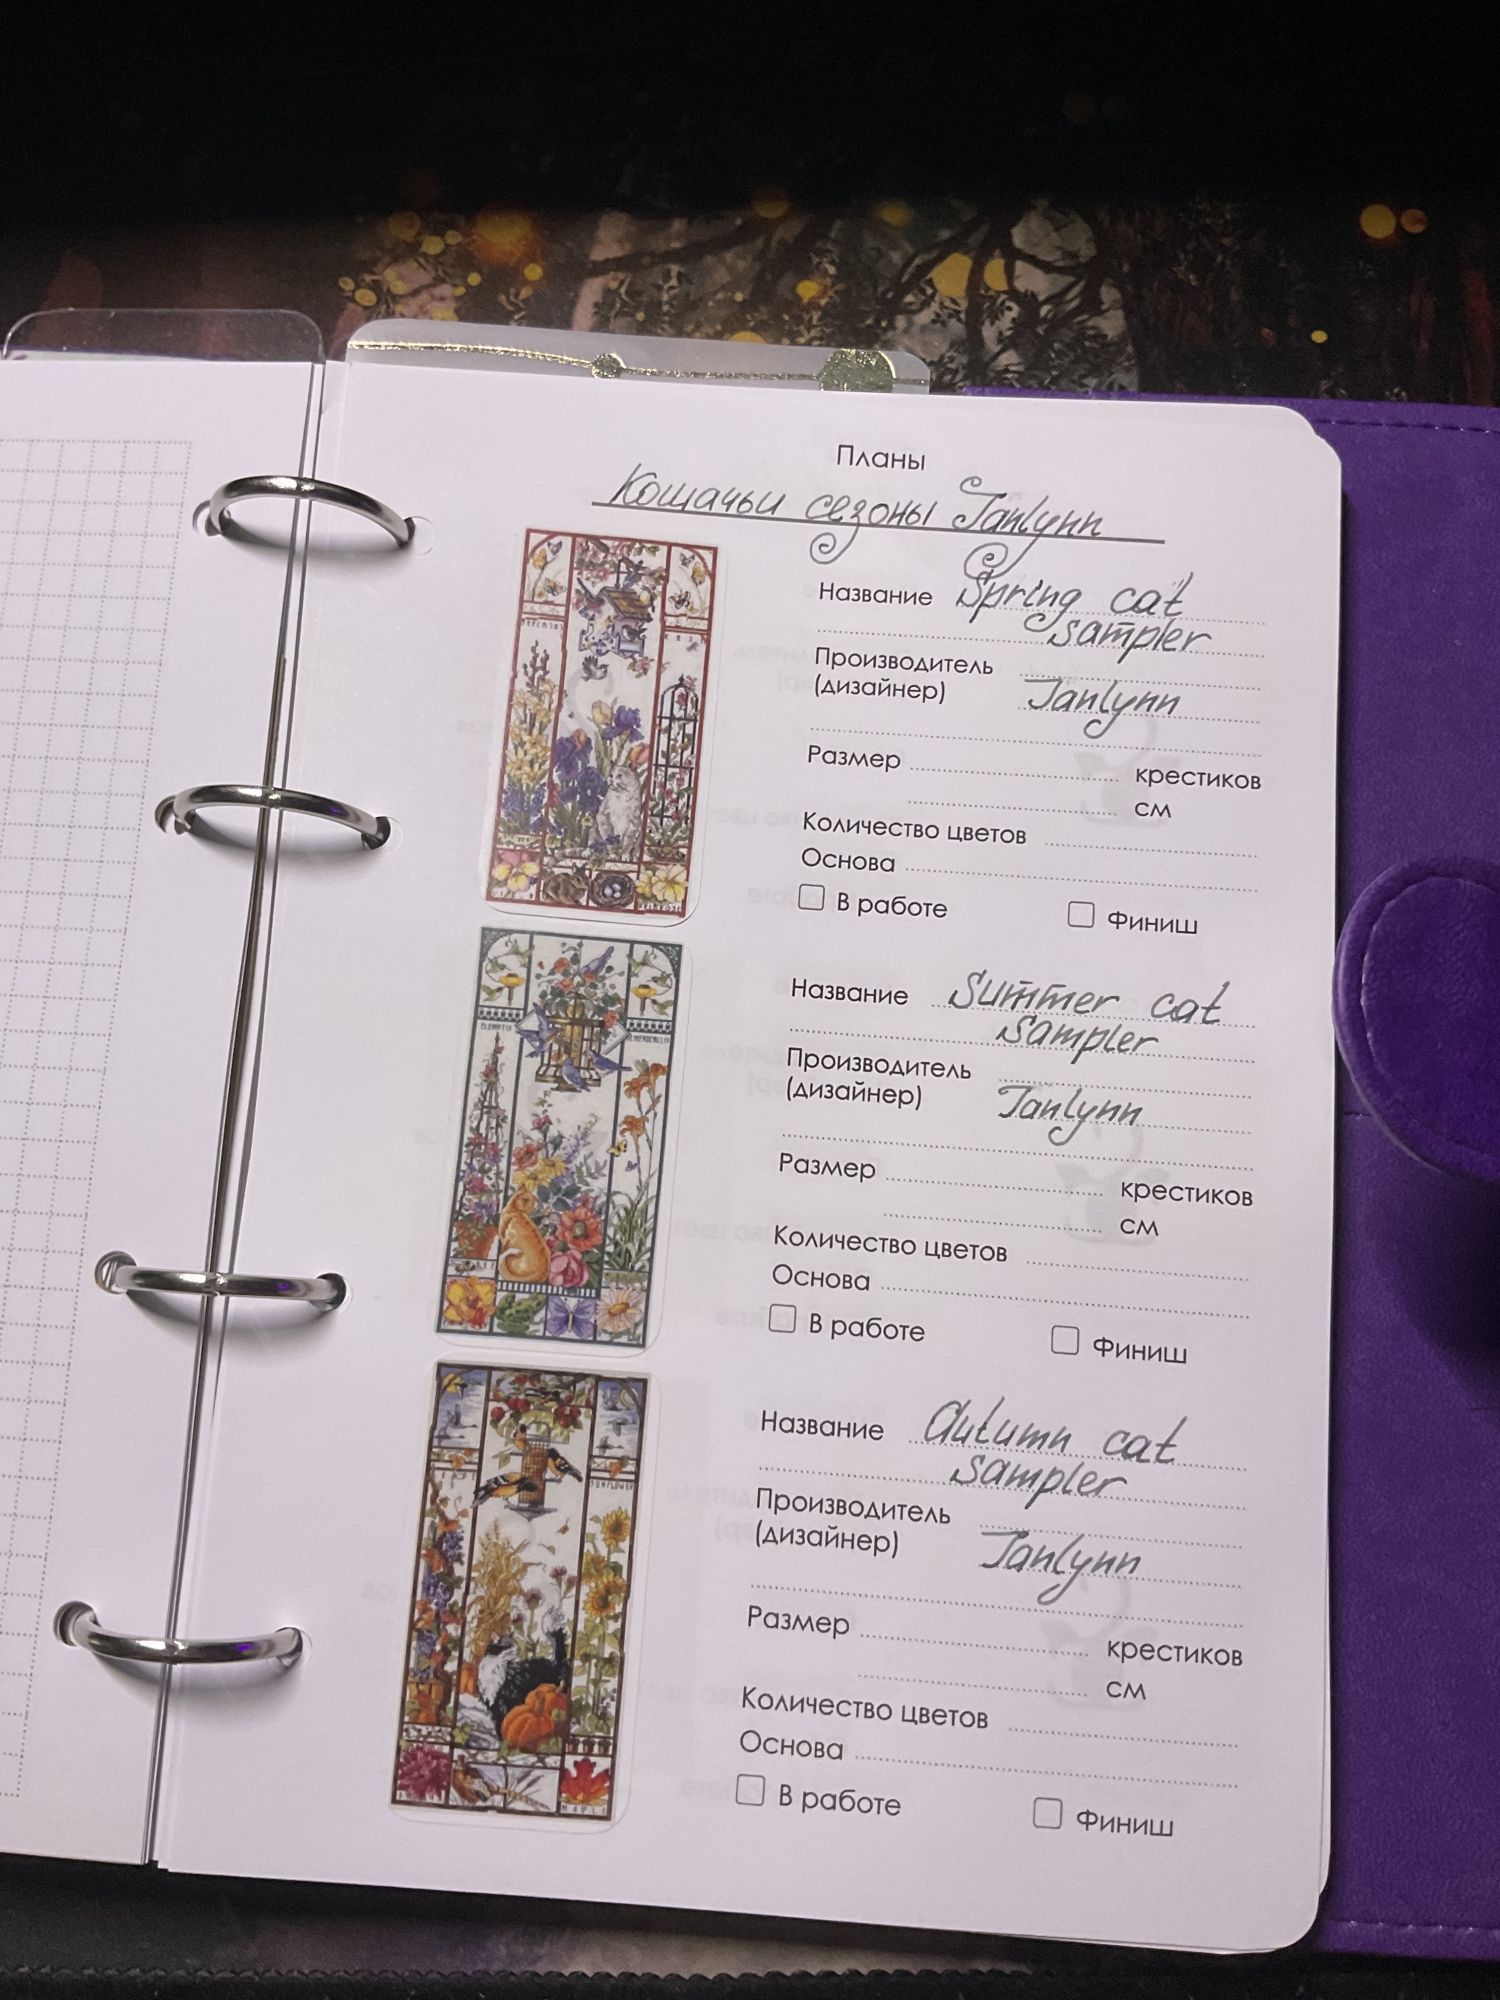 Планы
Кошачьи сезоны Janlynn
Название Spring cat
sampler
Производитель
(дизайнер) Janlynn
Размер крестиков
см
Количество цветов
Основа
В работе Финиш
Название Summer cat
sampler
Производитель
(дизайнер) Janlynn
Размер крестиков
см
Количество цветов
Основа
В работе Финиш
Название Autumn cat
sampler
Производитель
(дизайнер) Janlynn
Размер крестиков
см
Количество цветов
Основа
В работе Финиш
CLEMATIS
SUNFLOWER
MAPLE